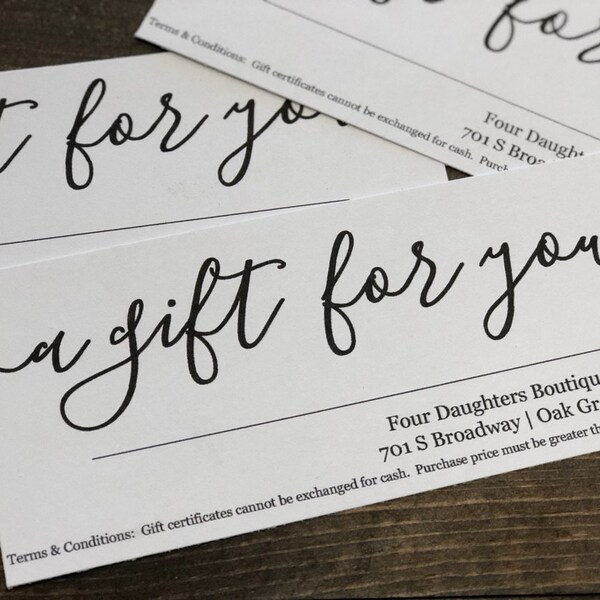 for
Terms & Conditions: Gift certificates cannot be exchanged for cash. Purch
Four Daughters
701 S Broad
for you
a gift for you
Four Daughters Boutiqu
701 S Broadway | Oak Gr
Terms & Conditions: Gift certificates cannot be exchanged for cash. Purchase price must be greater th